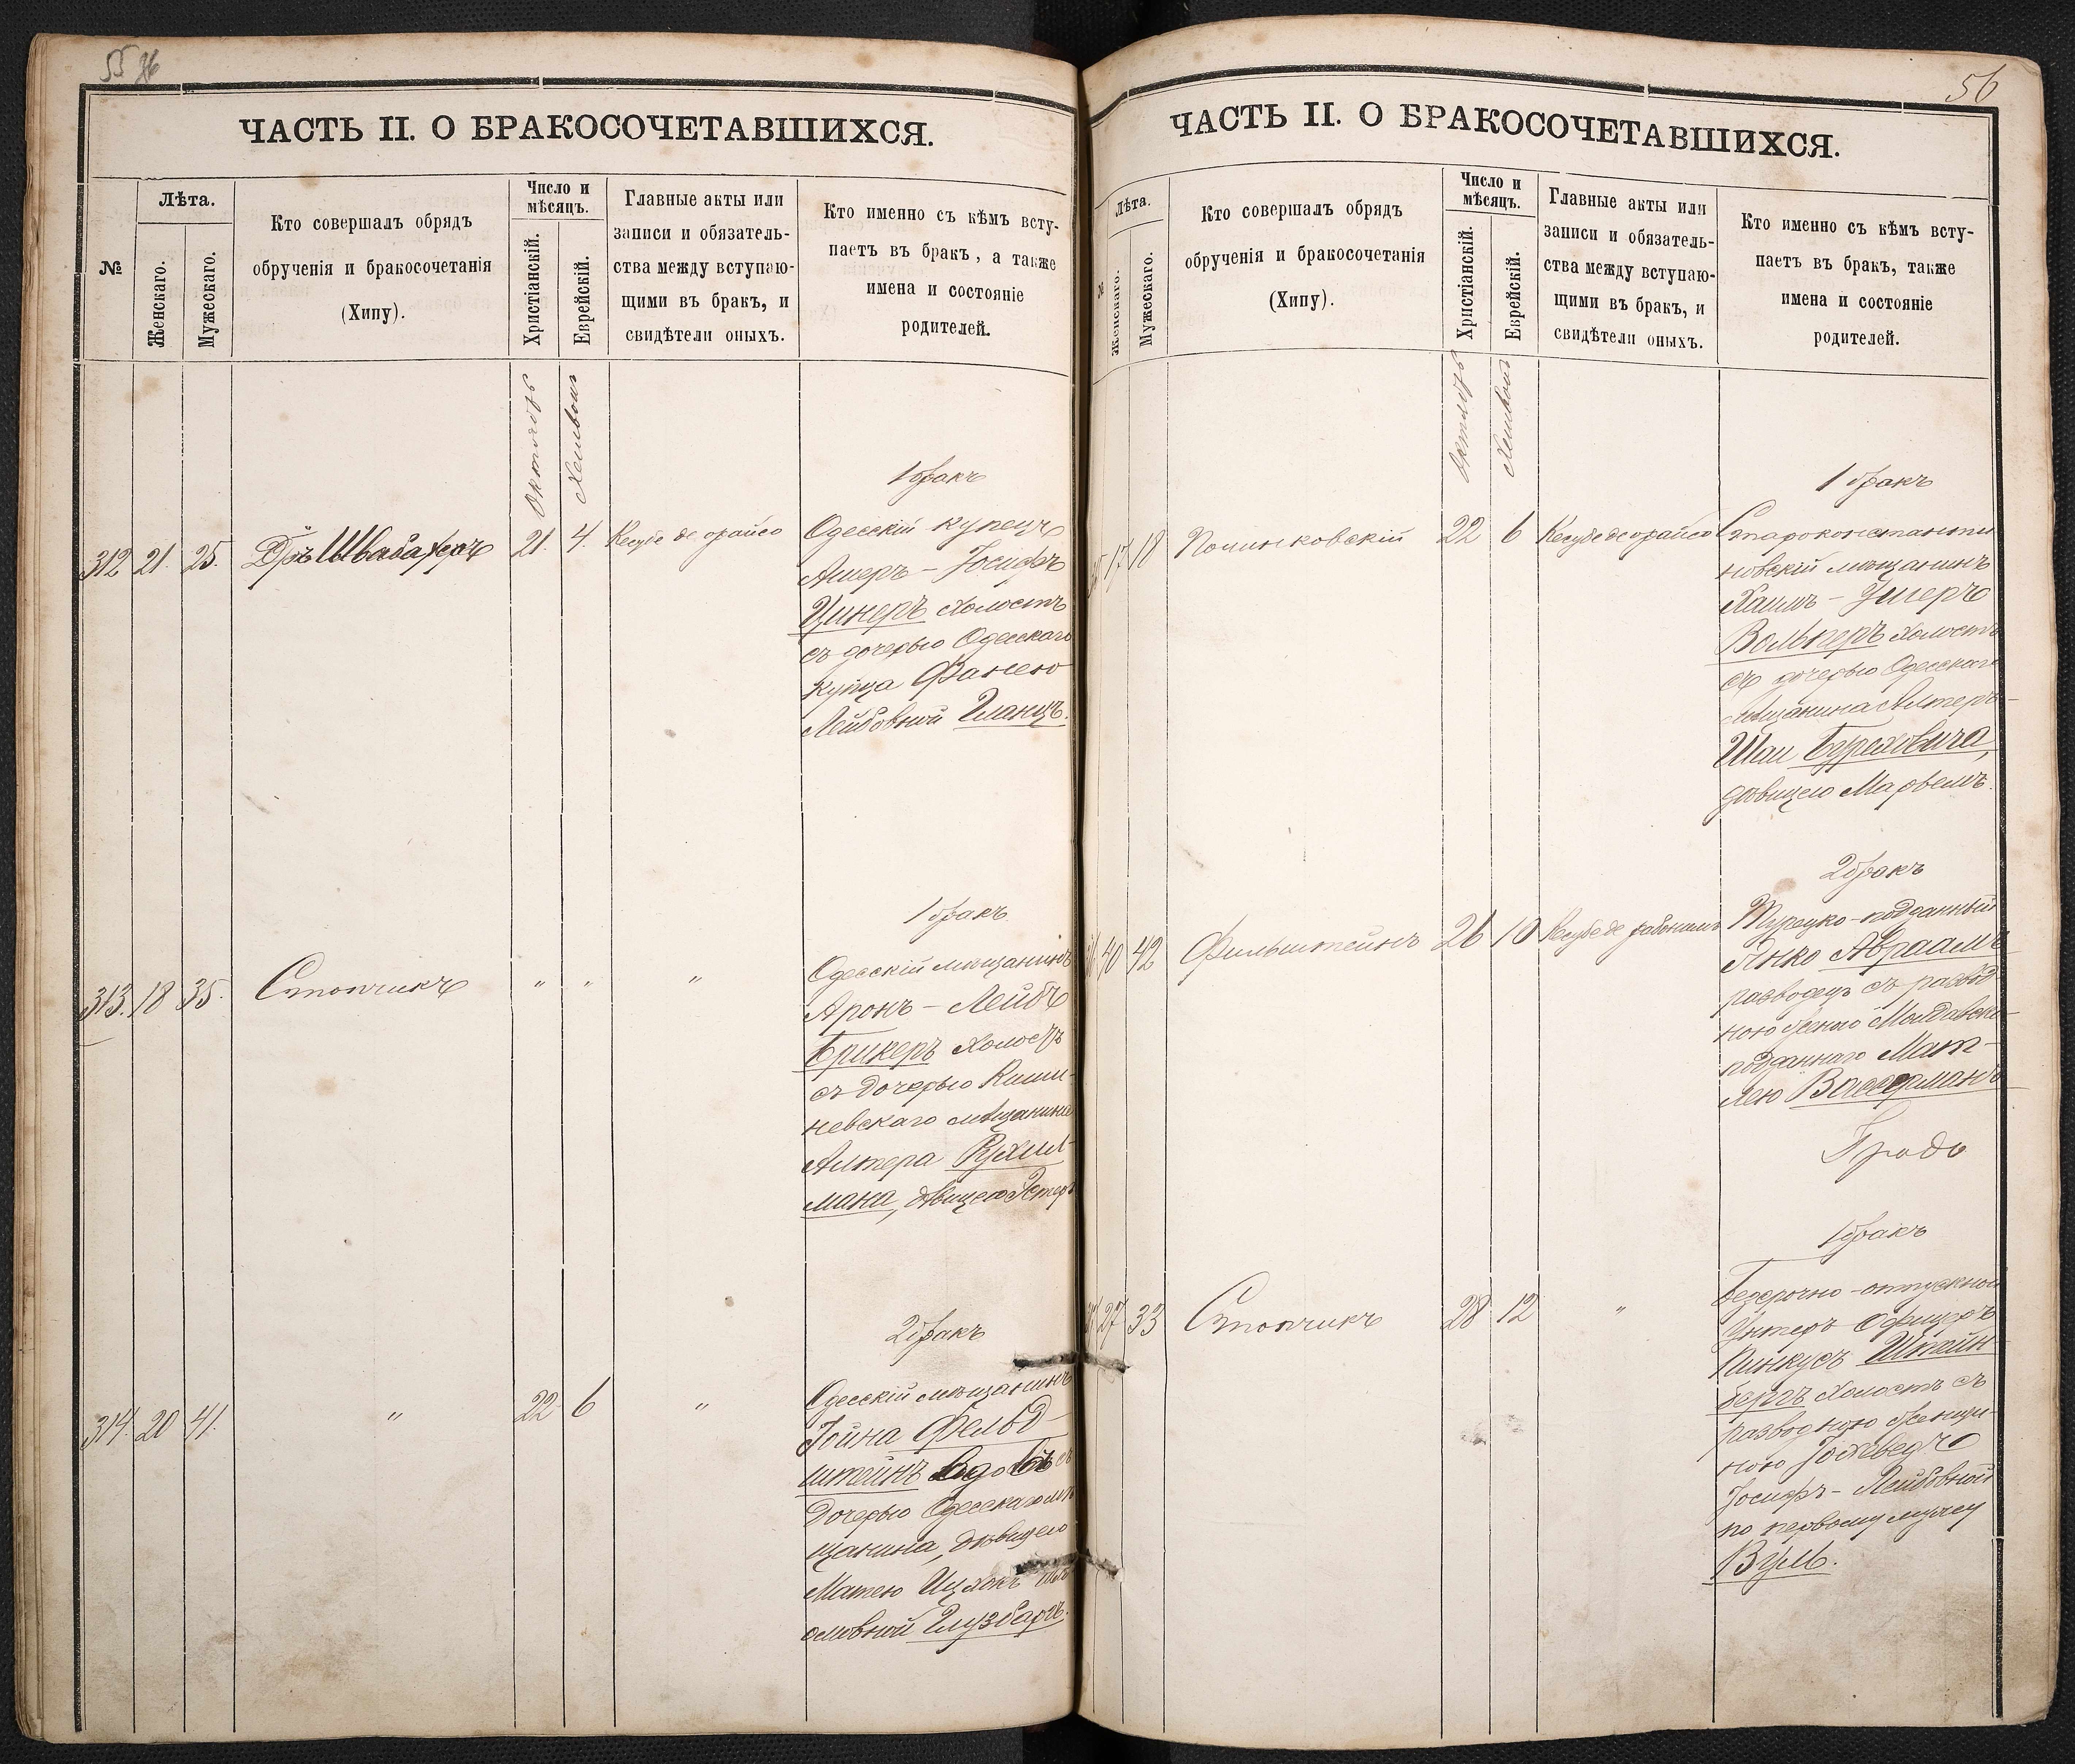 55
ЧАСТЬ II. О БРАКОСОЧЕТАВШИХСЯ.
№
Лѣта.
Женскаго.
Мужескаго.
Кто совершалъ обрядъ
обрученія и бракосочетанія
(Хипу).
Число и
мѣсяцъ.
Христіанскій.
Еврейскій.
Главные акты или
записи и обязатель-
ства между вступаю-
щими въ бракъ, и
свидѣтели оныхъ.
Кто именно съ кѣмъ всту-
паетъ въ бракъ, а также
имена и состояніе
родителей.
Октябрь
Хешвон
1 бракъ
312 21. 25. Д-ръ Швабахеръ 21. 4. Кесубе де орайсо
Одесскій купецъ
Ашеръ - Іосифъ
Цинеръ холостъ
съ дочерью Одесскаго
купца Фанею
Лейбовной Гланцъ.
1 бракъ
313. 18 35. Стопчикъ " " "
Одесскій мѣщанинъ
Аронъ - Лейбъ
Брикеръ холостъ
съ дочерью Киши-
невскаго мѣщанина
Алтера Рухли-
мана, дѣвицею Эстеръ
2 бракъ
314. 20 41. " 22 6 "
Одесскій мѣщанинъ
Іойна Фельд-
штейнъ вдовъ съ
дочерью Одесскаго мѣ
щанина, дѣвицею
Матею Ицхокъ Шл
омовной Глузбаръ.
56
ЧАСТЬ II. О БРАКОСОЧЕТАВШИХСЯ.
№
Лѣта.
Женскаго.
Мужескаго.
Кто совершалъ обрядъ
обрученія и бракосочетанія
(Хипу).
Число и
мѣсяцъ.
Христіанскій.
Еврейскій.
Главные акты или
записи и обязатель-
ства между вступаю-
щими въ бракъ, и
свидѣтели оныхъ.
Кто именно съ кѣмъ всту-
паетъ въ бракъ, также
имена и состояніе
родителей.
Октябрь
Хешвон
1 бракъ
17 18 Полинковскій 22 6 Кесубе де орайсо
Староконстанти
новскій мѣщанинъ
Хаимъ - Ушеръ
Волькеръ холостъ
съ дочерью Одесскаго
мѣщанина Алтеръ-
Шаи Бероховича,
дѣвицею Марьемъ.
2 бракъ
40 42 Фильштейнъ 26 10 Кесубе де рабонон
Турецко-подданный
Янко Авраамъ
разводецъ съ развод
ною женою Молдавско-
подданнаго Мат-
лею Вассерманъ
Бродъ
1 бракъ
27 33 Стопчикъ 28 12 "
Безсрочно-отпускной
Унтеръ Офицеръ
Пинкусъ Штейн-
бергъ холостъ съ
разводною женщи-
ною Іохведъ
Іосифъ-Лейбовной
по первому мужу
Вуль.